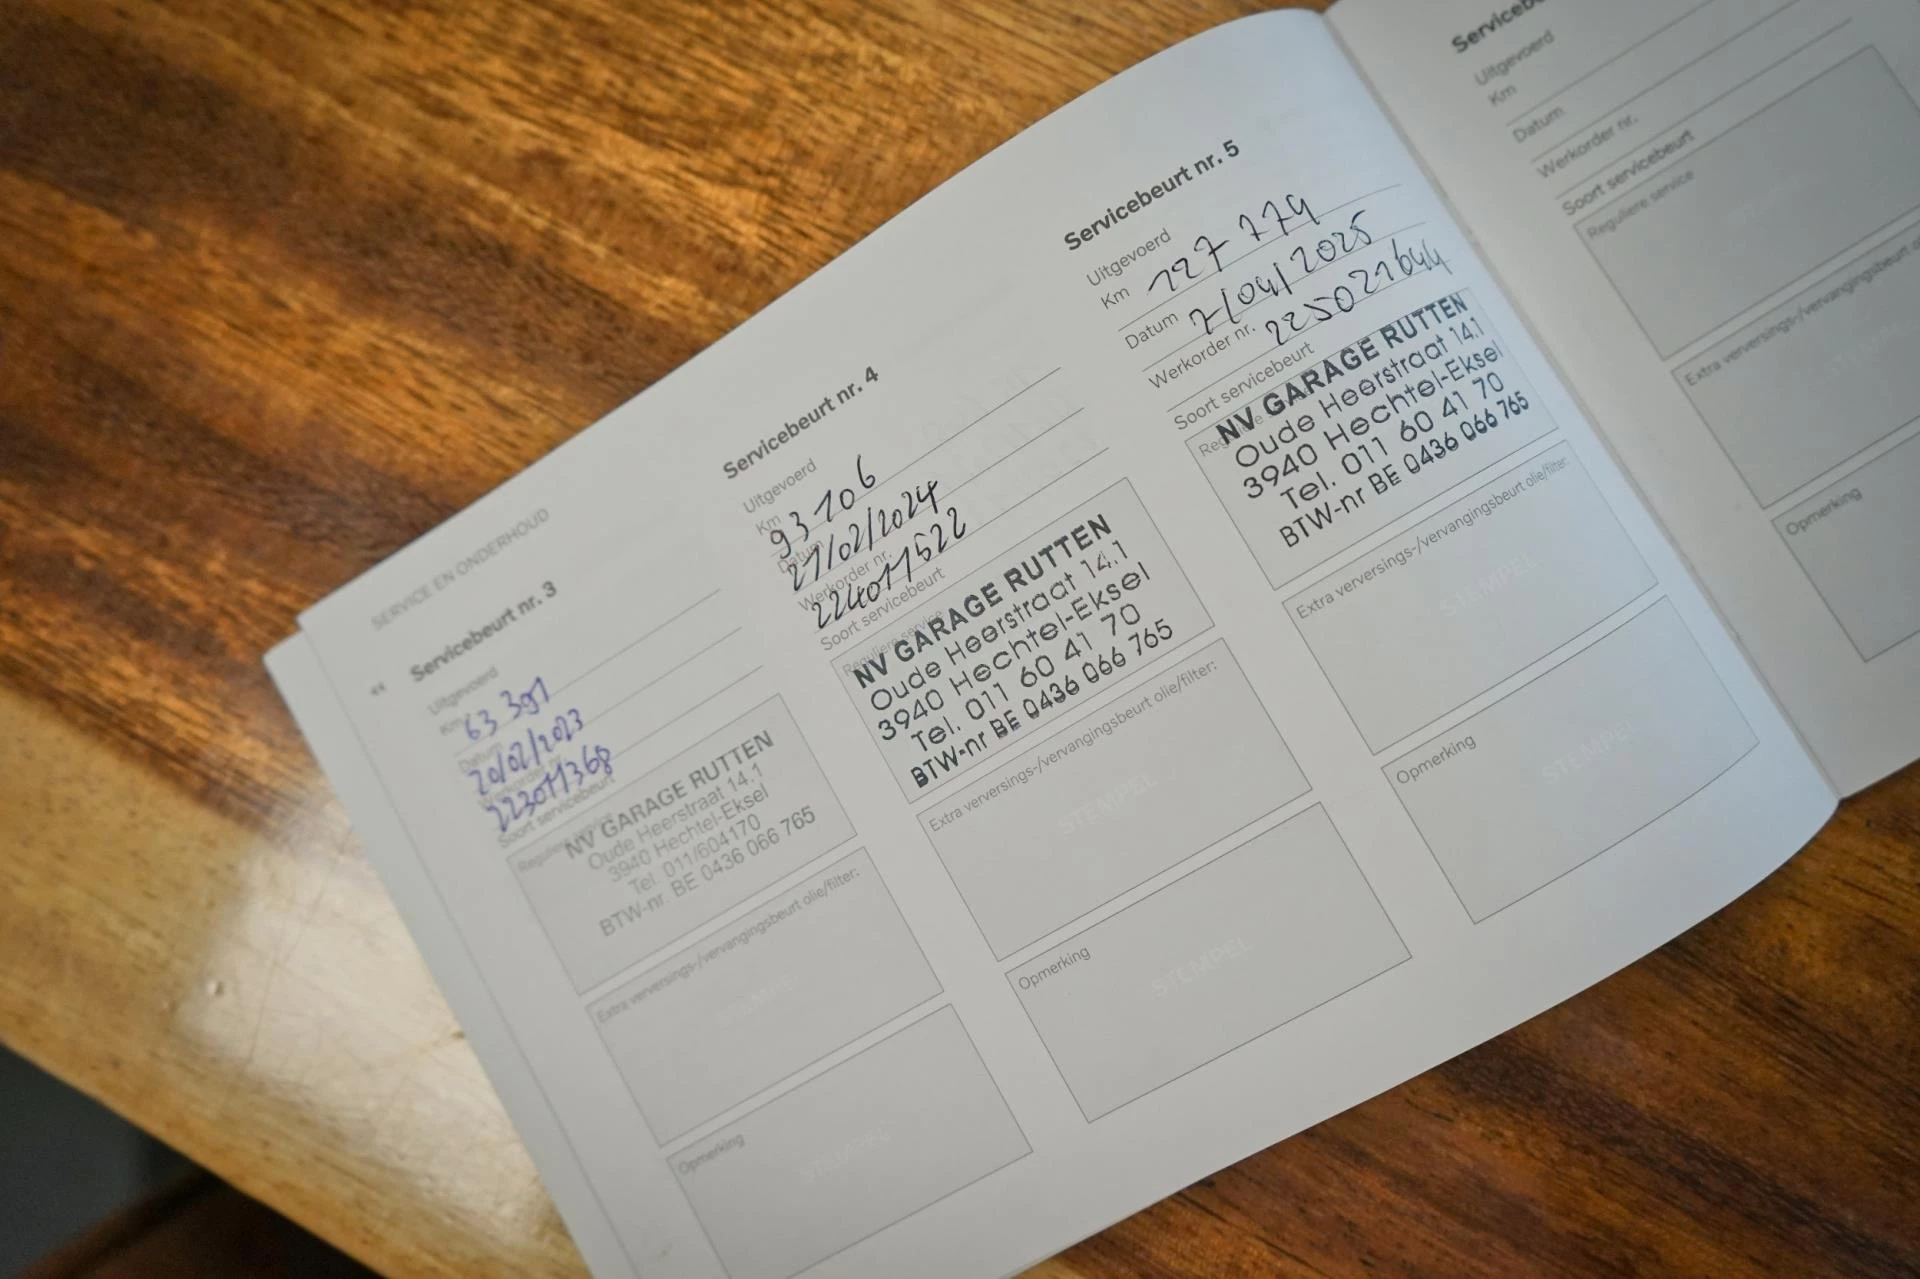 SERVICE EN ONDERHOUD
Servicebeurt nr. 3
Uitgevoerd
Km 63 391
Datum 20/02/2023
Werkorder nr. 223011368
Soort servicebeurt
Reguliere
NV GARAGE RUTTEN
Oude Heerstraat 14.1
3940 Hechtel-Eksel
Tel. 011/604170
BTW-nr. BE 0436 066 765
Extra verversings-/vervangingsbeurt olie/filter:
STEMPEL
Opmerking
STEMPEL
Servicebeurt nr. 4
Uitgevoerd
Km 93 106
Datum 21/02/2024
Werkorder nr. 224011522
Soort servicebeurt
Reguliere service
NV GARAGE RUTTEN
Oude Heerstraat 14.1
3940 Hechtel-Eksel
Tel. 011 60 41 70
BTW-nr BE 0436 066 765
Extra verversings-/vervangingsbeurt olie/filter:
STEMPEL
Opmerking
STEMPEL
Servicebeurt nr. 5
Uitgevoerd
Km 127 779
Datum 7/04/2025
Werkorder nr. 225021644
Soort servicebeurt
NV GARAGE RUTTEN
Oude Heerstraat 14.1
3940 Hechtel-Eksel
Tel. 011 60 41 70
BTW-nr BE 0436 066 765
Extra verversings-/vervangingsbeurt olie/filter:
STEMPEL
Opmerking
STEMPEL
Uitgevoerd
Km
Datum
Werkorder nr.
Soort servicebeurt
Reguliere service
Extra verversings-/vervangingsbeurt
Opmerking